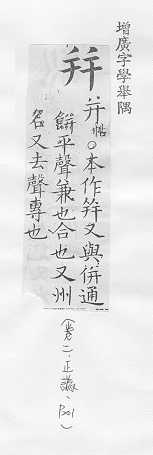 增廣字學舉隅
幷 并俗○本作幷又與併通
餅平聲兼也合也又州
名又去聲專也
(卷二、正譌、